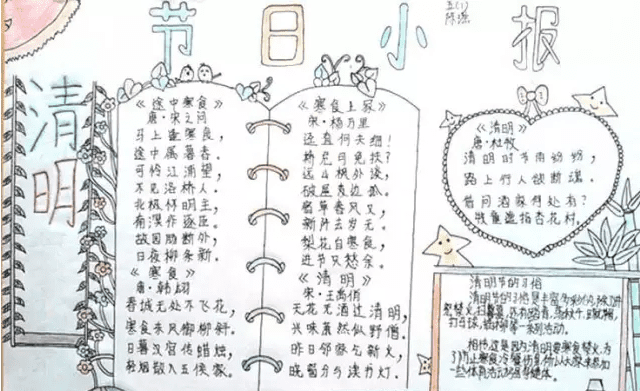 节日小报
五(1)
清明
《途中寒食》
唐·宋之问
马上逢寒食，
途中属暮春。
可怜江浦望，
不见洛桥人。
北极怀明主，
南溟作逐臣。
故园肠断处，
日夜柳条新。
《寒食》
唐·韩翃
春城无处不飞花，
寒食东风御柳斜。
日暮汉宫传蜡烛，
轻烟散入五侯家。
《寒食上冢》
宋·杨万里
迳直何夫细！
桥危可免扶？
远山枫外淡，
破屋麦边孤。
宿草春风又，
新阡去岁无。
梨花自寒食，
进节只愁余。
《清明》
宋·王禹偁
无花无酒过清明，
兴味萧然似野僧。
昨日邻家乞新火，
晓窗分与读书灯。
《清明》
唐·杜牧
清明时节雨纷纷，
路上行人欲断魂。
借问酒家何处有？
牧童遥指杏花村。
清明节的习俗
清明节的习俗是丰富
打马球、插柳等一系列活动。
相传这是因为清明要寒食禁火，为